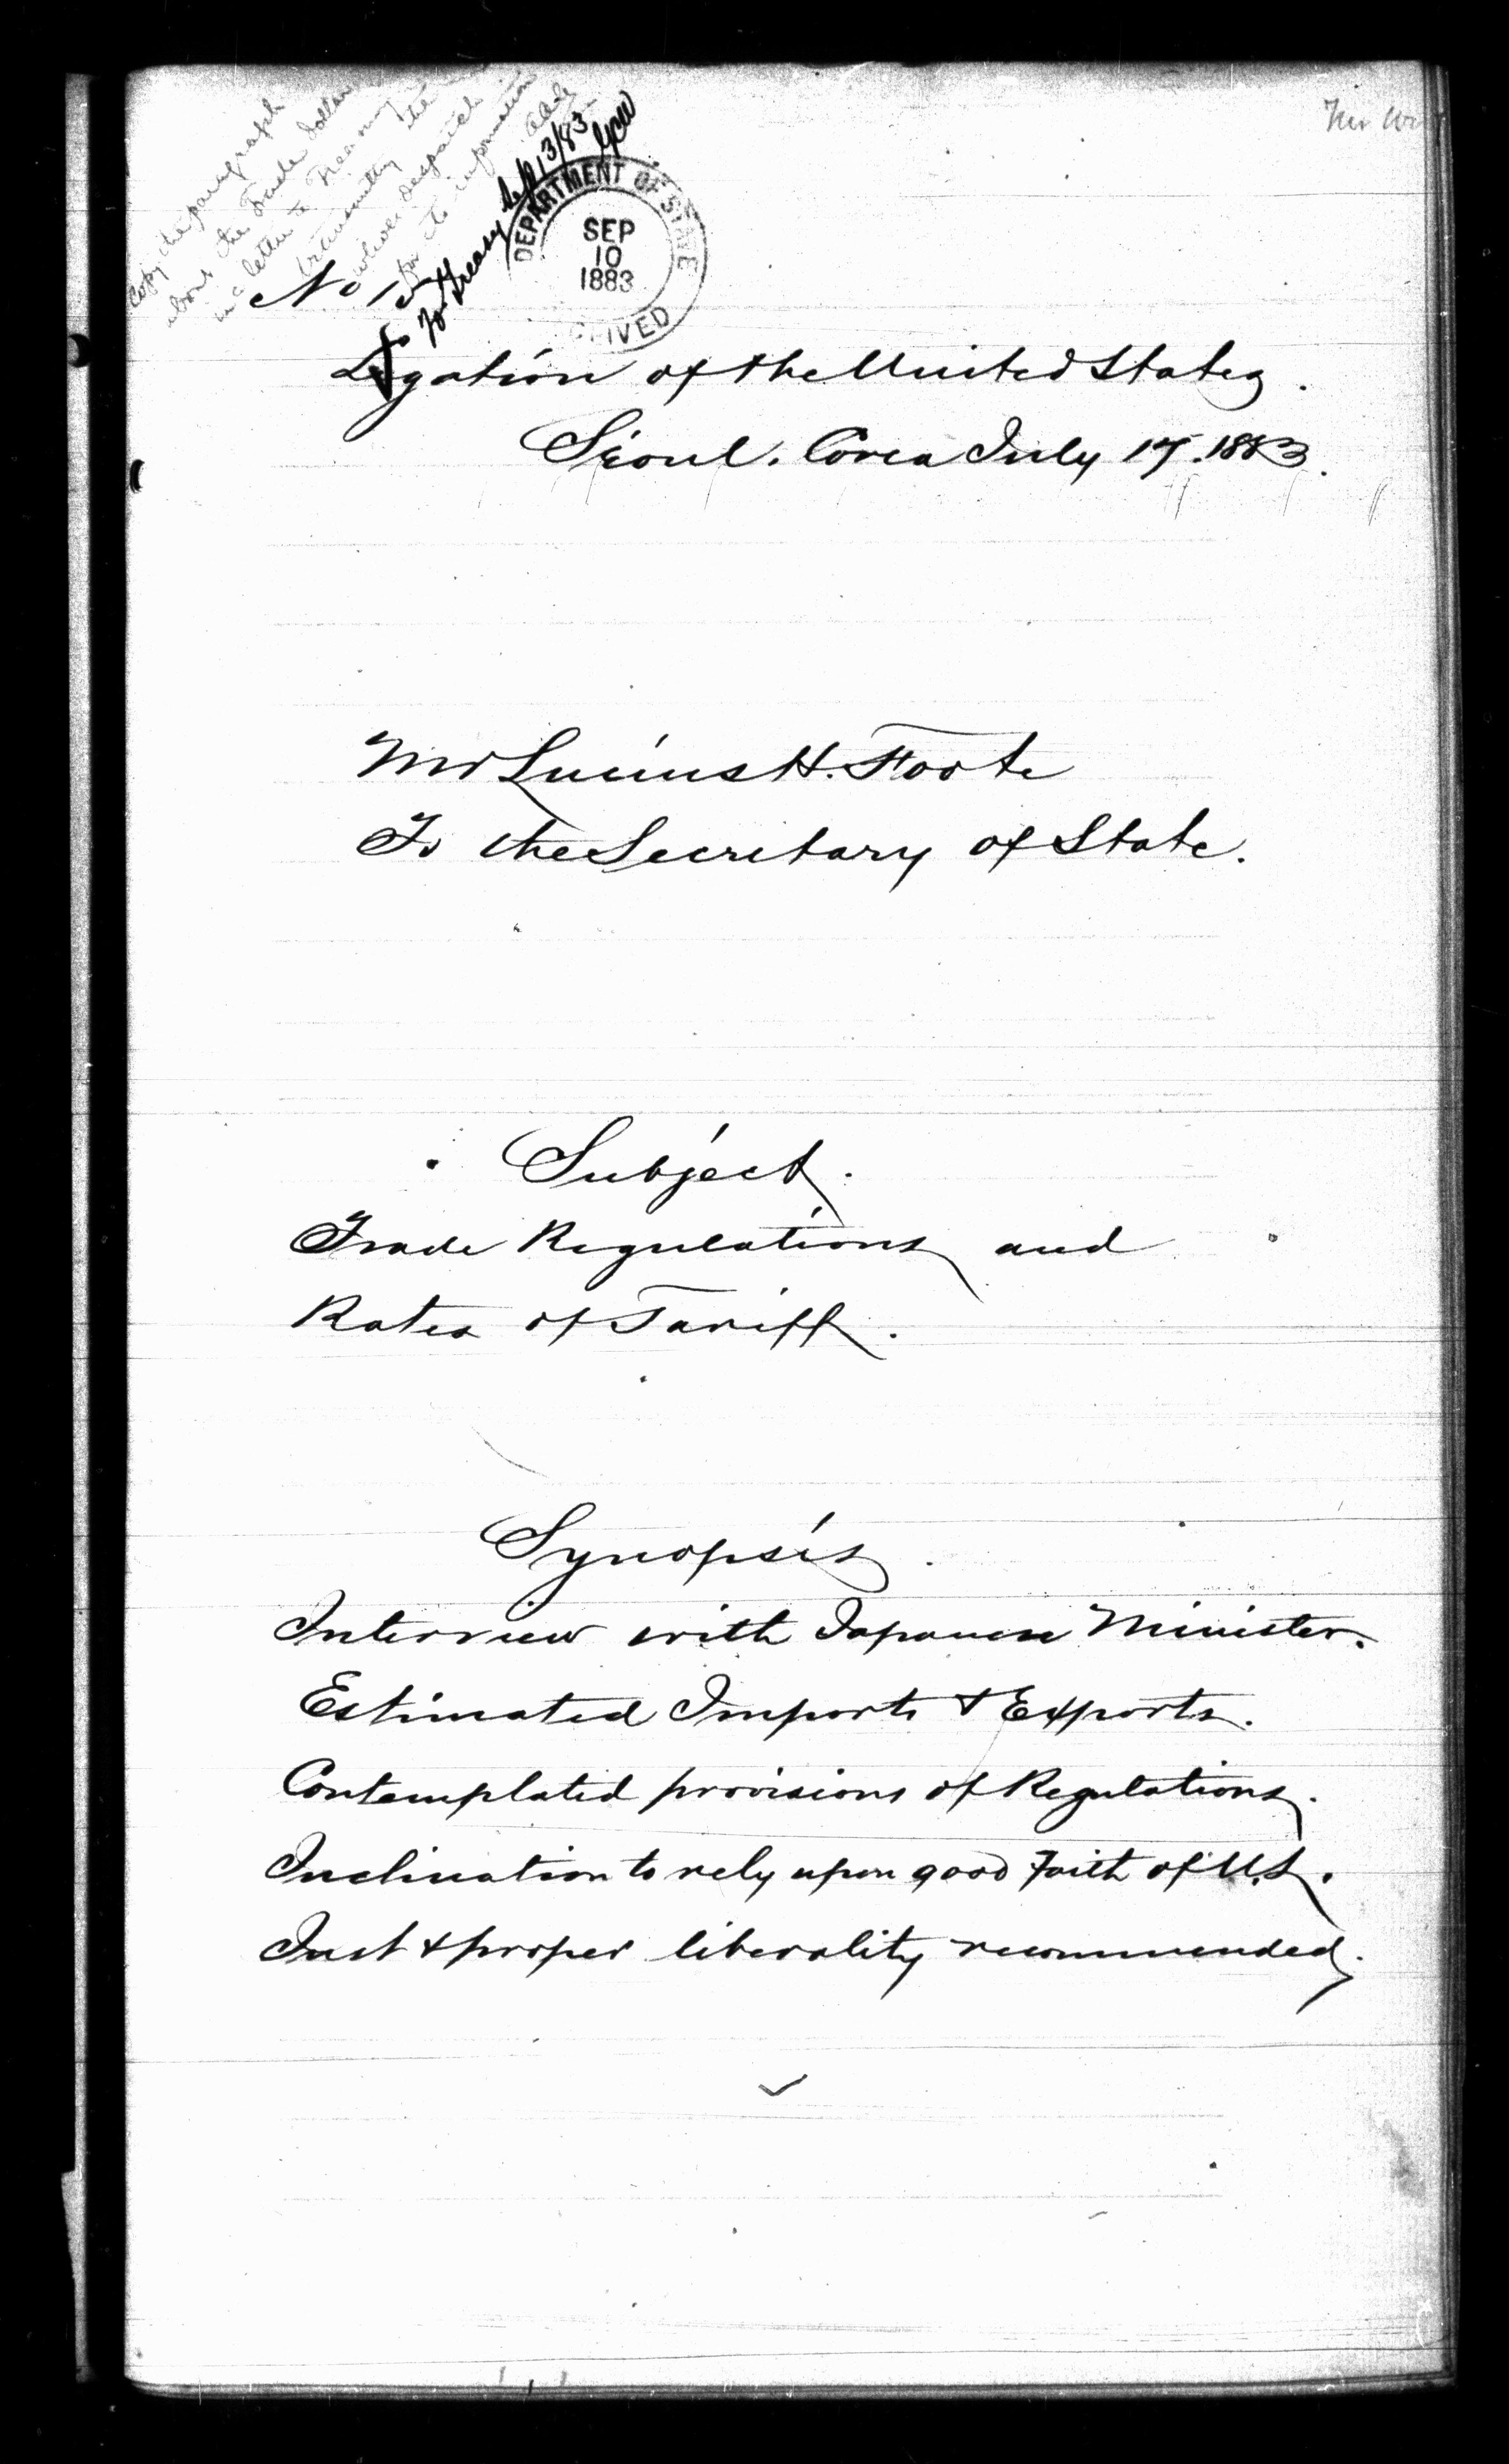 Copy the paragraph
about the Trade dollar
in a letter to Treasury
transmitting the
whole despatch
for its information
To Treasury Sep 13/83
DEPARTMENT OF STATE
SEP
10
1883
No 15
Legation of the United States.
Séoul. Corea July 17. 1883.
Mr Lucius H. Foote
To the Secretary of State.
Subject.
Trade Regulations and
Rates of Tariff.
Synopsis.
Interview with Japanese Minister.
Estimated Imports & Exports.
Contemplated provisions of Regulations.
Inclination to rely upon good Faith of U.S.
Just & proper liberality recommended.